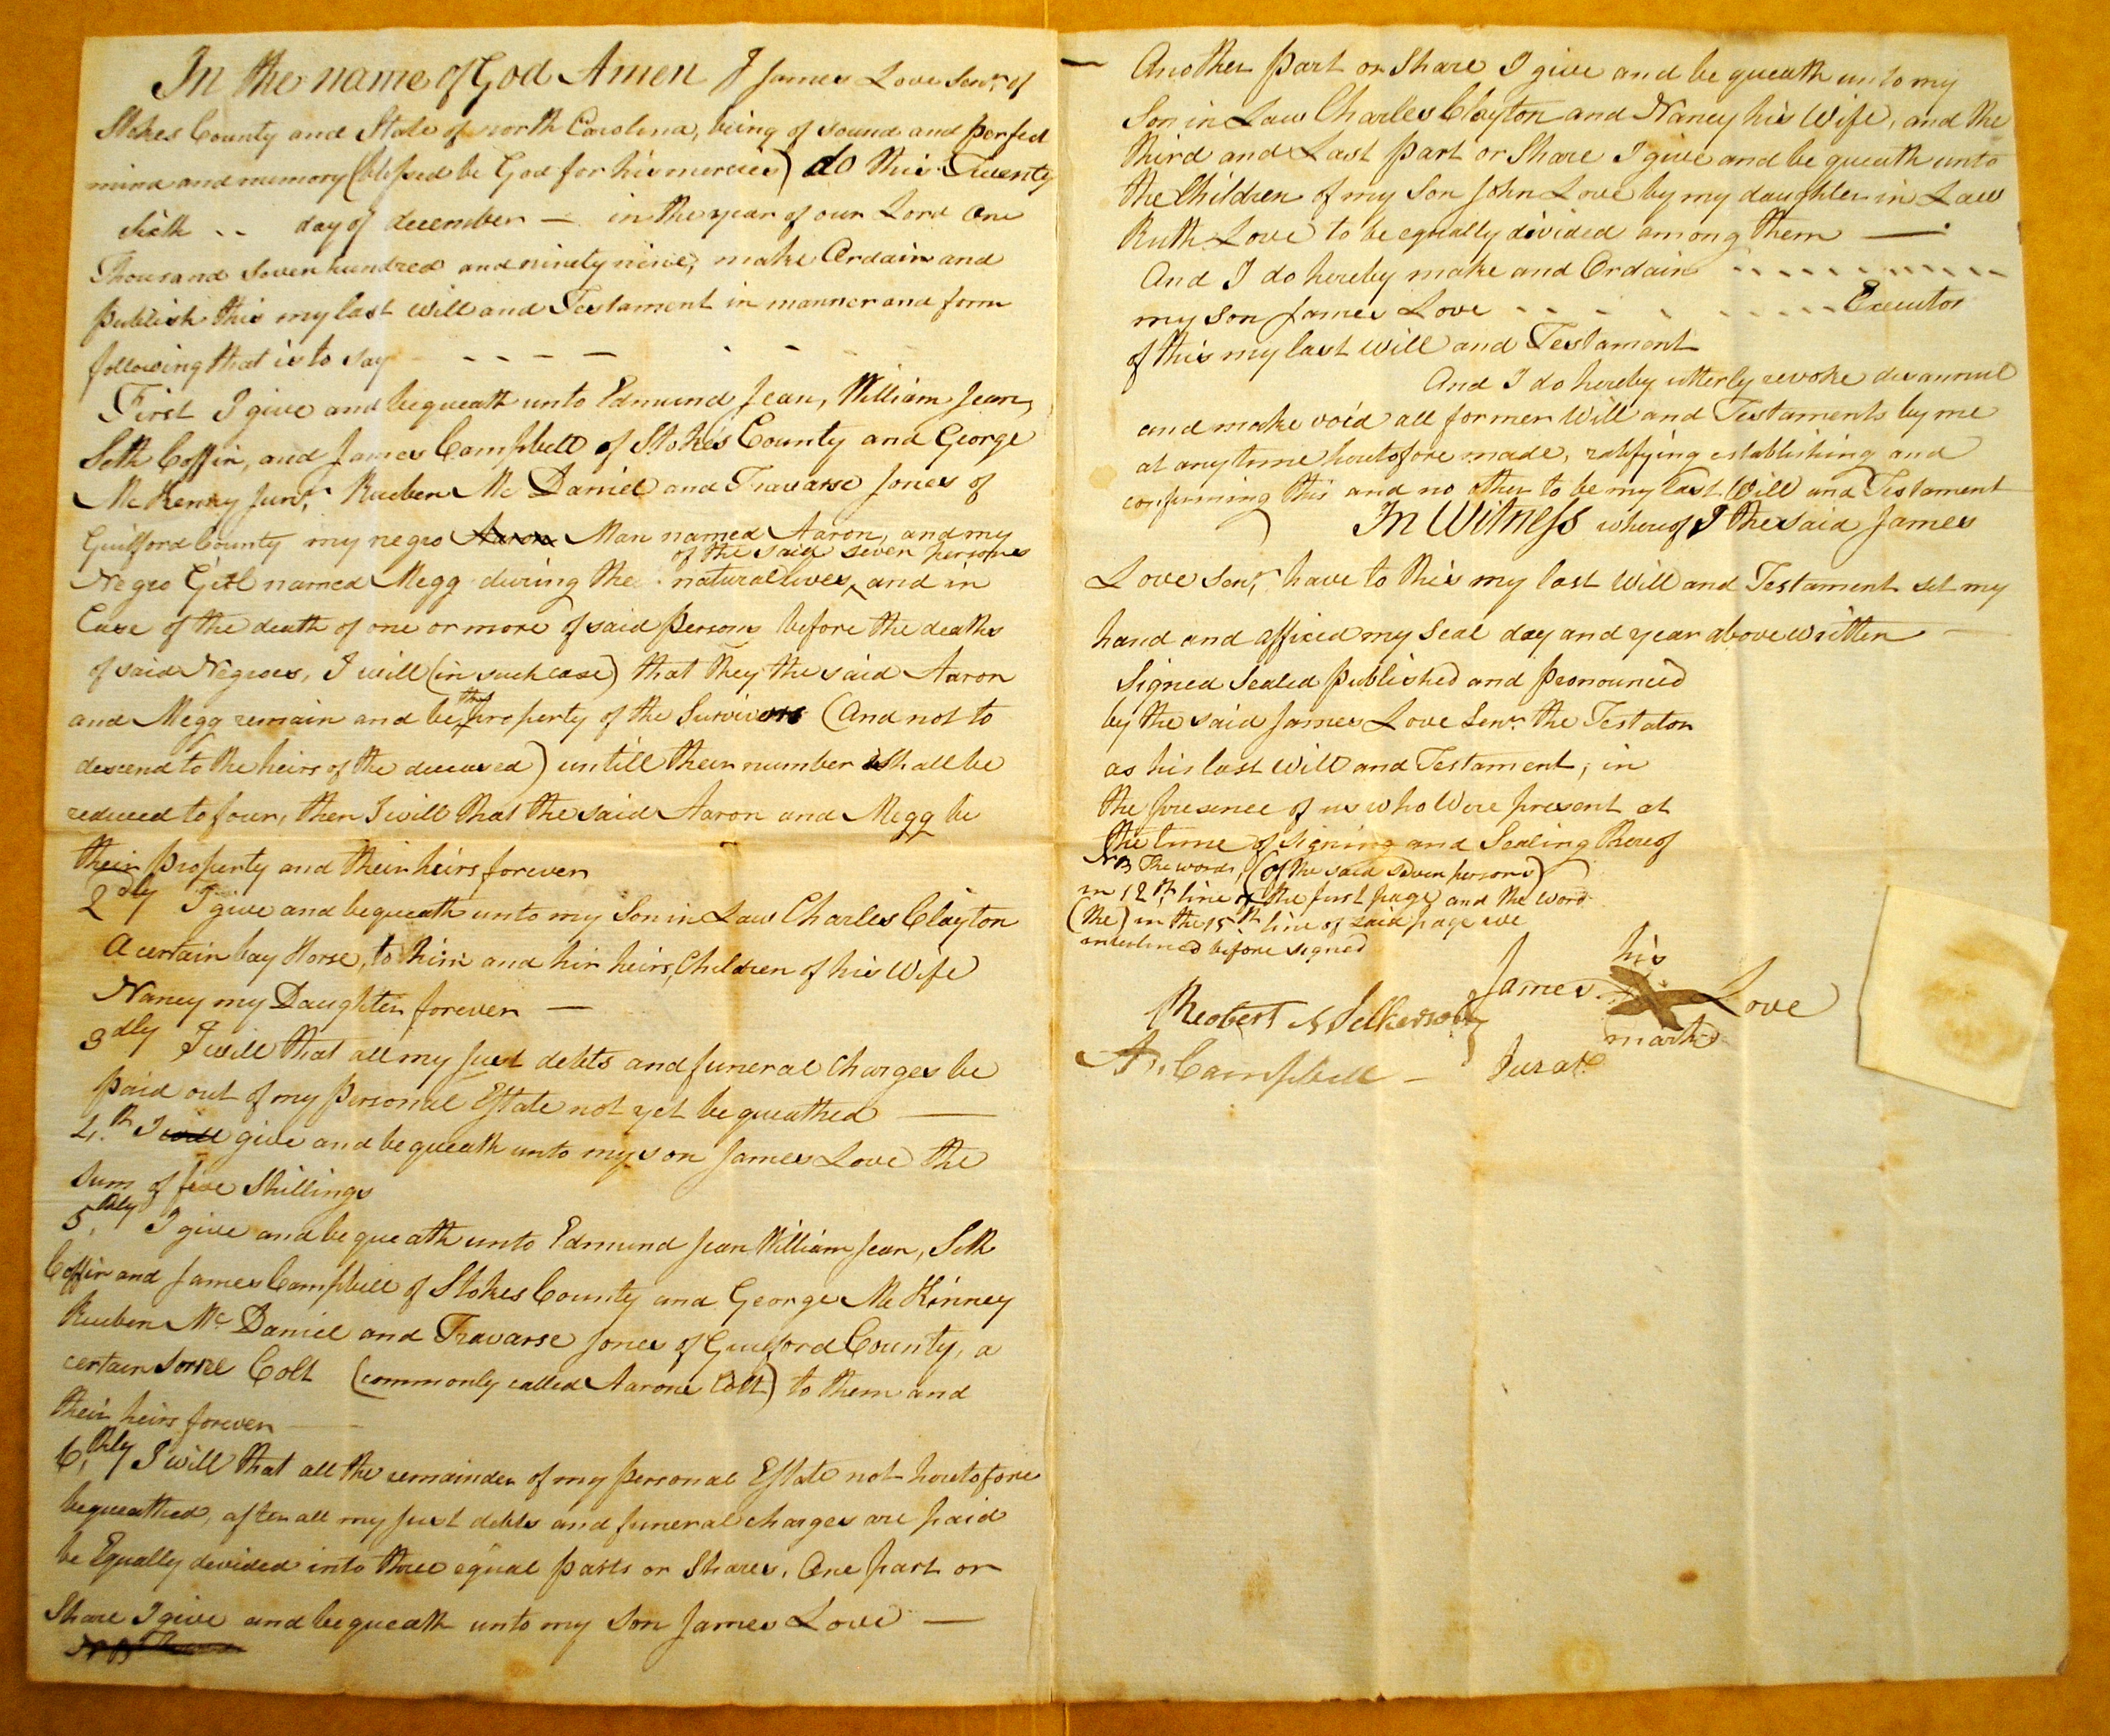 In the name of God Amen I James Love Senr. of
Stokes County and State of north Carolina, being of sound and perfect
mind and memory (blessed be God for his mercies) do this Twenty
sixth .. day of december — in the year of our Lord One
Thousand Seven hundred and ninety nine, make Ordain and
Publish this my last Will and Testament in manner and form
following that is to say - - - - - - -
First I give and bequeath unto Edmund Jean, William Jean,
Seth Coffin, and James Campbell of Stokes County and George
McKenny Junr. Rueben Mc Daniel and Travarse Jones of
Guilford County my negro Aaron Man named Aaron, and my
of the said seven persons
Negro Girl named Megg during the natural lives ^ and in
Case of the death of one or more of said Persons before the deaths
of said Negroes, I will (in such case) that they the said Aaron
the
and Megg remain and be ^ property of the Survivors (And not to
descend to the heirs of the deceased) untill their number shall be
reduced to four, then I will that the said Aaron and Megg be
their Property and their heirs forever
2dly I give and bequeath unto my Son in Law Charles Clayton
A certain bay Horse, to him and his heirs, Children of his Wife
Nancy my Daughter forever —
3dly I will that all my just debts and funeral Charges be
paid out of my Personal Estate not yet bequeathed —
4.th I will give and bequeath unto my son James Love the
Sum of five Shillings
5.thly I give and bequeath unto Edmund Jean William Jean, Seth
Coffin and James Campbell of Stokes County and George McKinney
Rueben Mc Daniel and Travarse Jones of Guilford County, a
certain sorrel Colt (commonly called Aarons Colt) to them and
their heirs forever —
6.thly I will that all the remainder of my Personal Estate not heretofore
bequeathed, after all my just debts and funeral charges are paid
be Equally devided into three equal parts or Shares, One part or
Share I give and bequeath unto my Son James Love —
— Another Part or Share I give and bequeath unto my
Son in Law Charles Clayton and Nancy his Wife, and the
third and Last Part or Share I give and bequeath unto
the Children of my Son John Love by my daughter in Law
Ruth Love to be equally divided among them —.
And I do hereby make and Ordain - - - - - - - - - -
my Son James Love - - - - - - - - Executor
of this my last will and Testament
And I do hereby utterly revoke disannul
and make void all former Will and Testaments by me
at any time heretofore made, ratifying establishing and
confirming this and no other to be my last Will and Testament
In Witness whereof I the said James
Love Senr. have to this my last Will and Testament set my
hand and affixed my Seal day and year above written —
Signed Sealed Published and Pronounced
by the said James Love Senr. the Testator
as his last Will and Testament, in
the presence of us who Were present at
the time of signing and Sealing thereof
NB The words, (of the said seven persons)
in 12th. line of the first page and the word
(the) in the 15th. line of said page are
interlined before signed
his
James X Love
mark
Robert Wilkerson
A. Campbell — Jurat